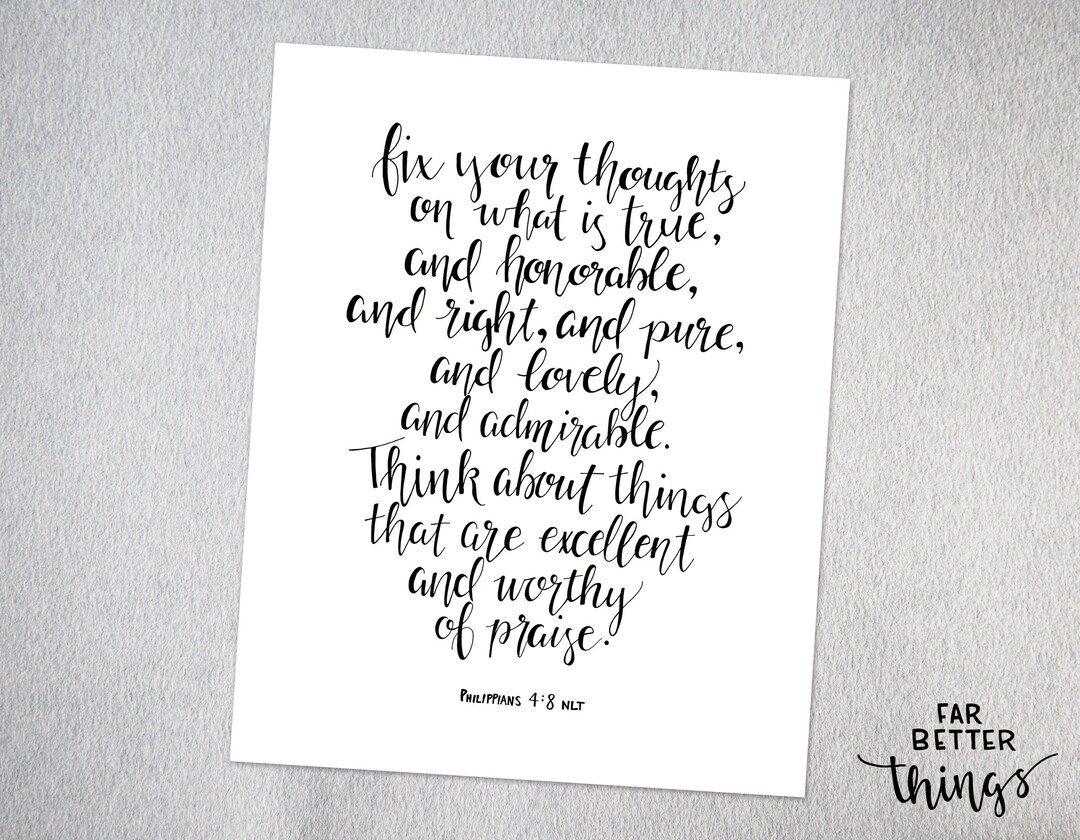 fix your thoughts
on what is true,
and honorable,
and right, and pure,
and lovely,
and admirable.
Think about things
that are excellent
and worthy
of praise.
PHILIPPIANS 4:8 NLT
FAR
BETTER
things